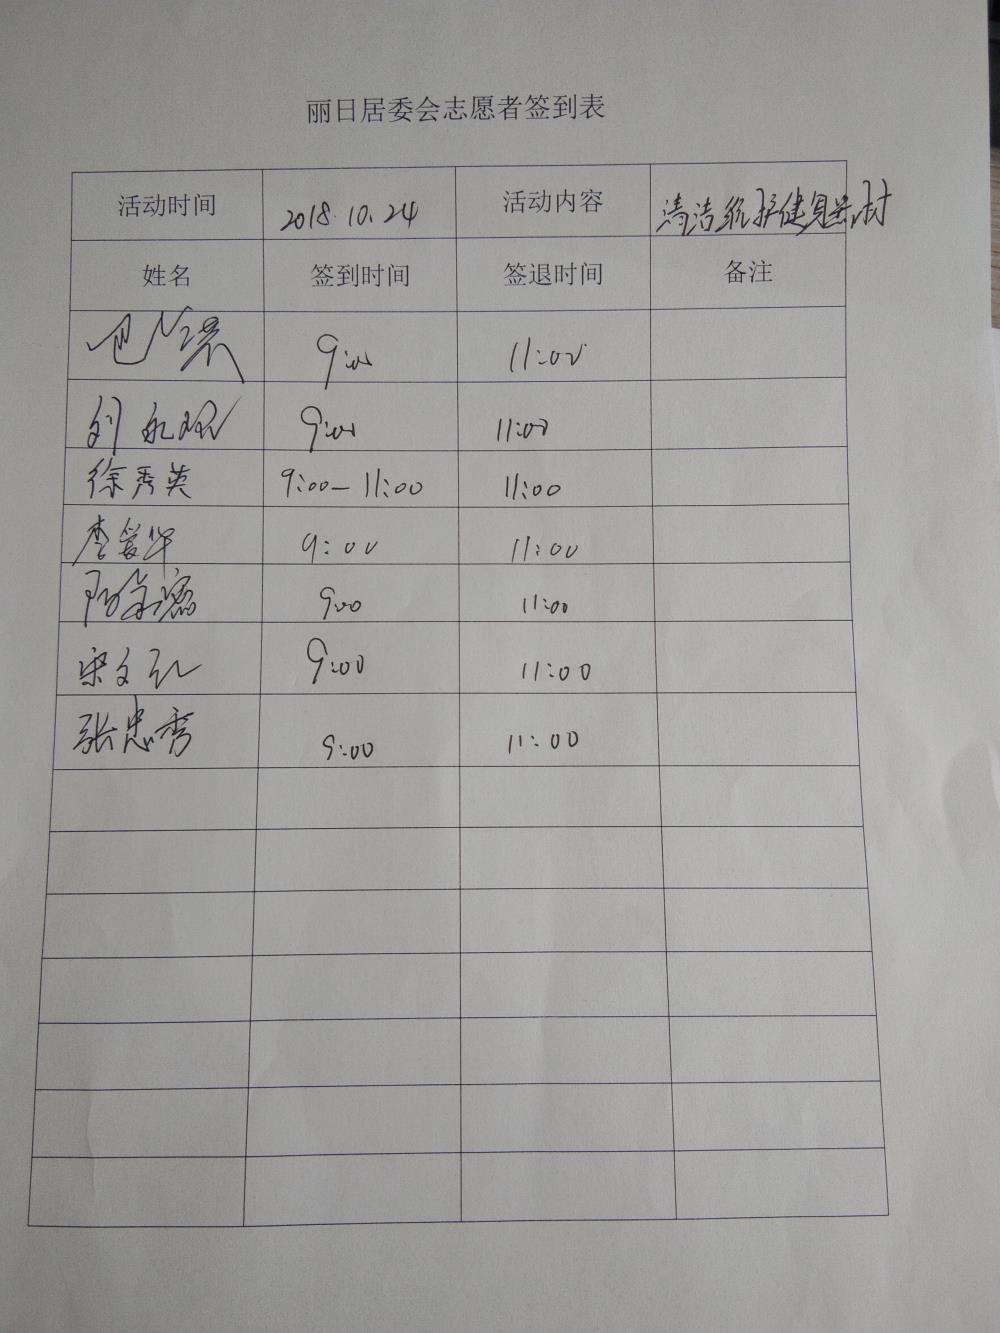 丽日居委会志愿者签到表
活动时间 2018.10.24 活动内容 清洁维护健身器材
姓名 签到时间 签退时间 备注
9:00 11:00
刘 9:00 11:00
徐秀英 9:00—11:00 11:00
李爱华 9:00 11:00
9:00 11:00
宋文 9:00 11:00
张忠秀 9:00 11:00